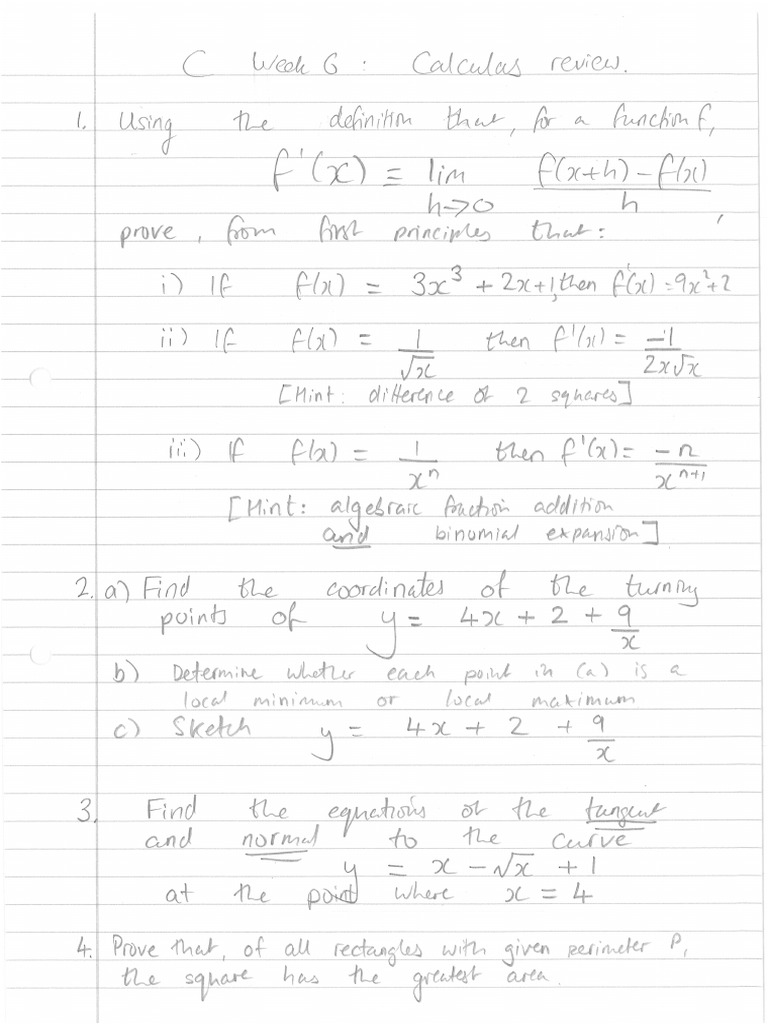 C Week 6 : Calculus review.
1. Using the definition that, for a function f,
f'(x) = lim h→0 (f(x+h) - f(x))/h ,
prove, from first principles that:
i) If f(x) = 3x³ + 2x+1, then f'(x) = 9x²+2
ii) If f(x) = 1/√x then f'(x) = -1/(2x√x)
[Hint: difference of 2 squares]
iii) If f(x) = 1/xⁿ then f'(x) = -n/xⁿ⁺¹
[Hint: algebraic fraction addition
and binomial expansion]
2. a) Find the coordinates of the turning
points of y = 4x + 2 + 9/x
b) Determine whether each point in (a) is a
local minimum or local maximum
c) Sketch y = 4x + 2 + 9/x
3. Find the equations of the tangent
and normal to the curve
y = x - √x + 1
at the point where x = 4
4. Prove that, of all rectangles with given perimeter P,
the square has the greatest area.